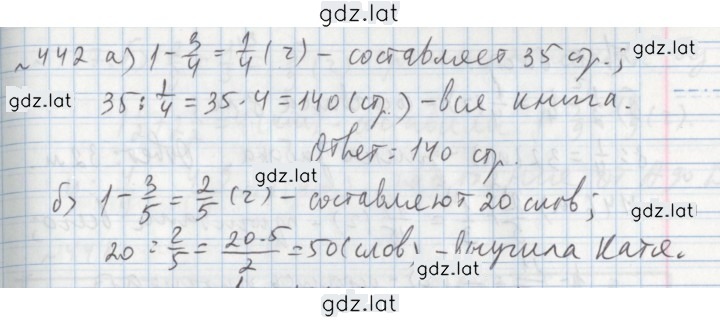 gdz.lat
№442 а) 1 - 3/4 = 1/4 (ч) - составляет 35 стр.;
gdz.lat gdz.lat
35 : 1/4 = 35 · 4 = 140 (стр.) - вся книга.
Ответ: 140 стр.
gdz.lat
б) 1 - 3/5 = 2/5 (ч) - составляют 20 слов;
gdz.lat
20 : 2/5 = 20·5/2 = 50 (слов) - выучила Катя.
gdz.lat